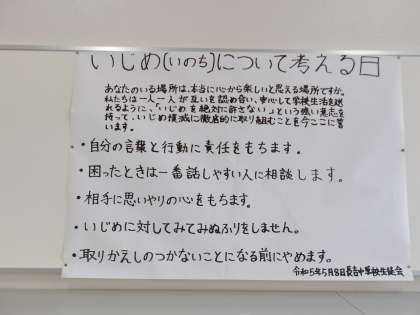 いじめ(いのち)について考える日
あなたのいる場所は、本当に心から楽しいと思える場所ですか。
私たちは一人一人が互いを認め合い、安心して学校生活を送
れるように、「いじめを絶対に許さない」という強い意志を
持って、いじめ撲滅に徹底的に取り組むことを今ここに誓
います。
・自分の言葉と行動に責任をもちます。
・困ったときは一番話しやすい人に相談します。
・相手に思いやりの心をもちます。
・いじめに対してみてみぬふりをしません。
・取りかえしのつかないことになる前にやめます。
令和5年5月8日長吉中学校生徒会